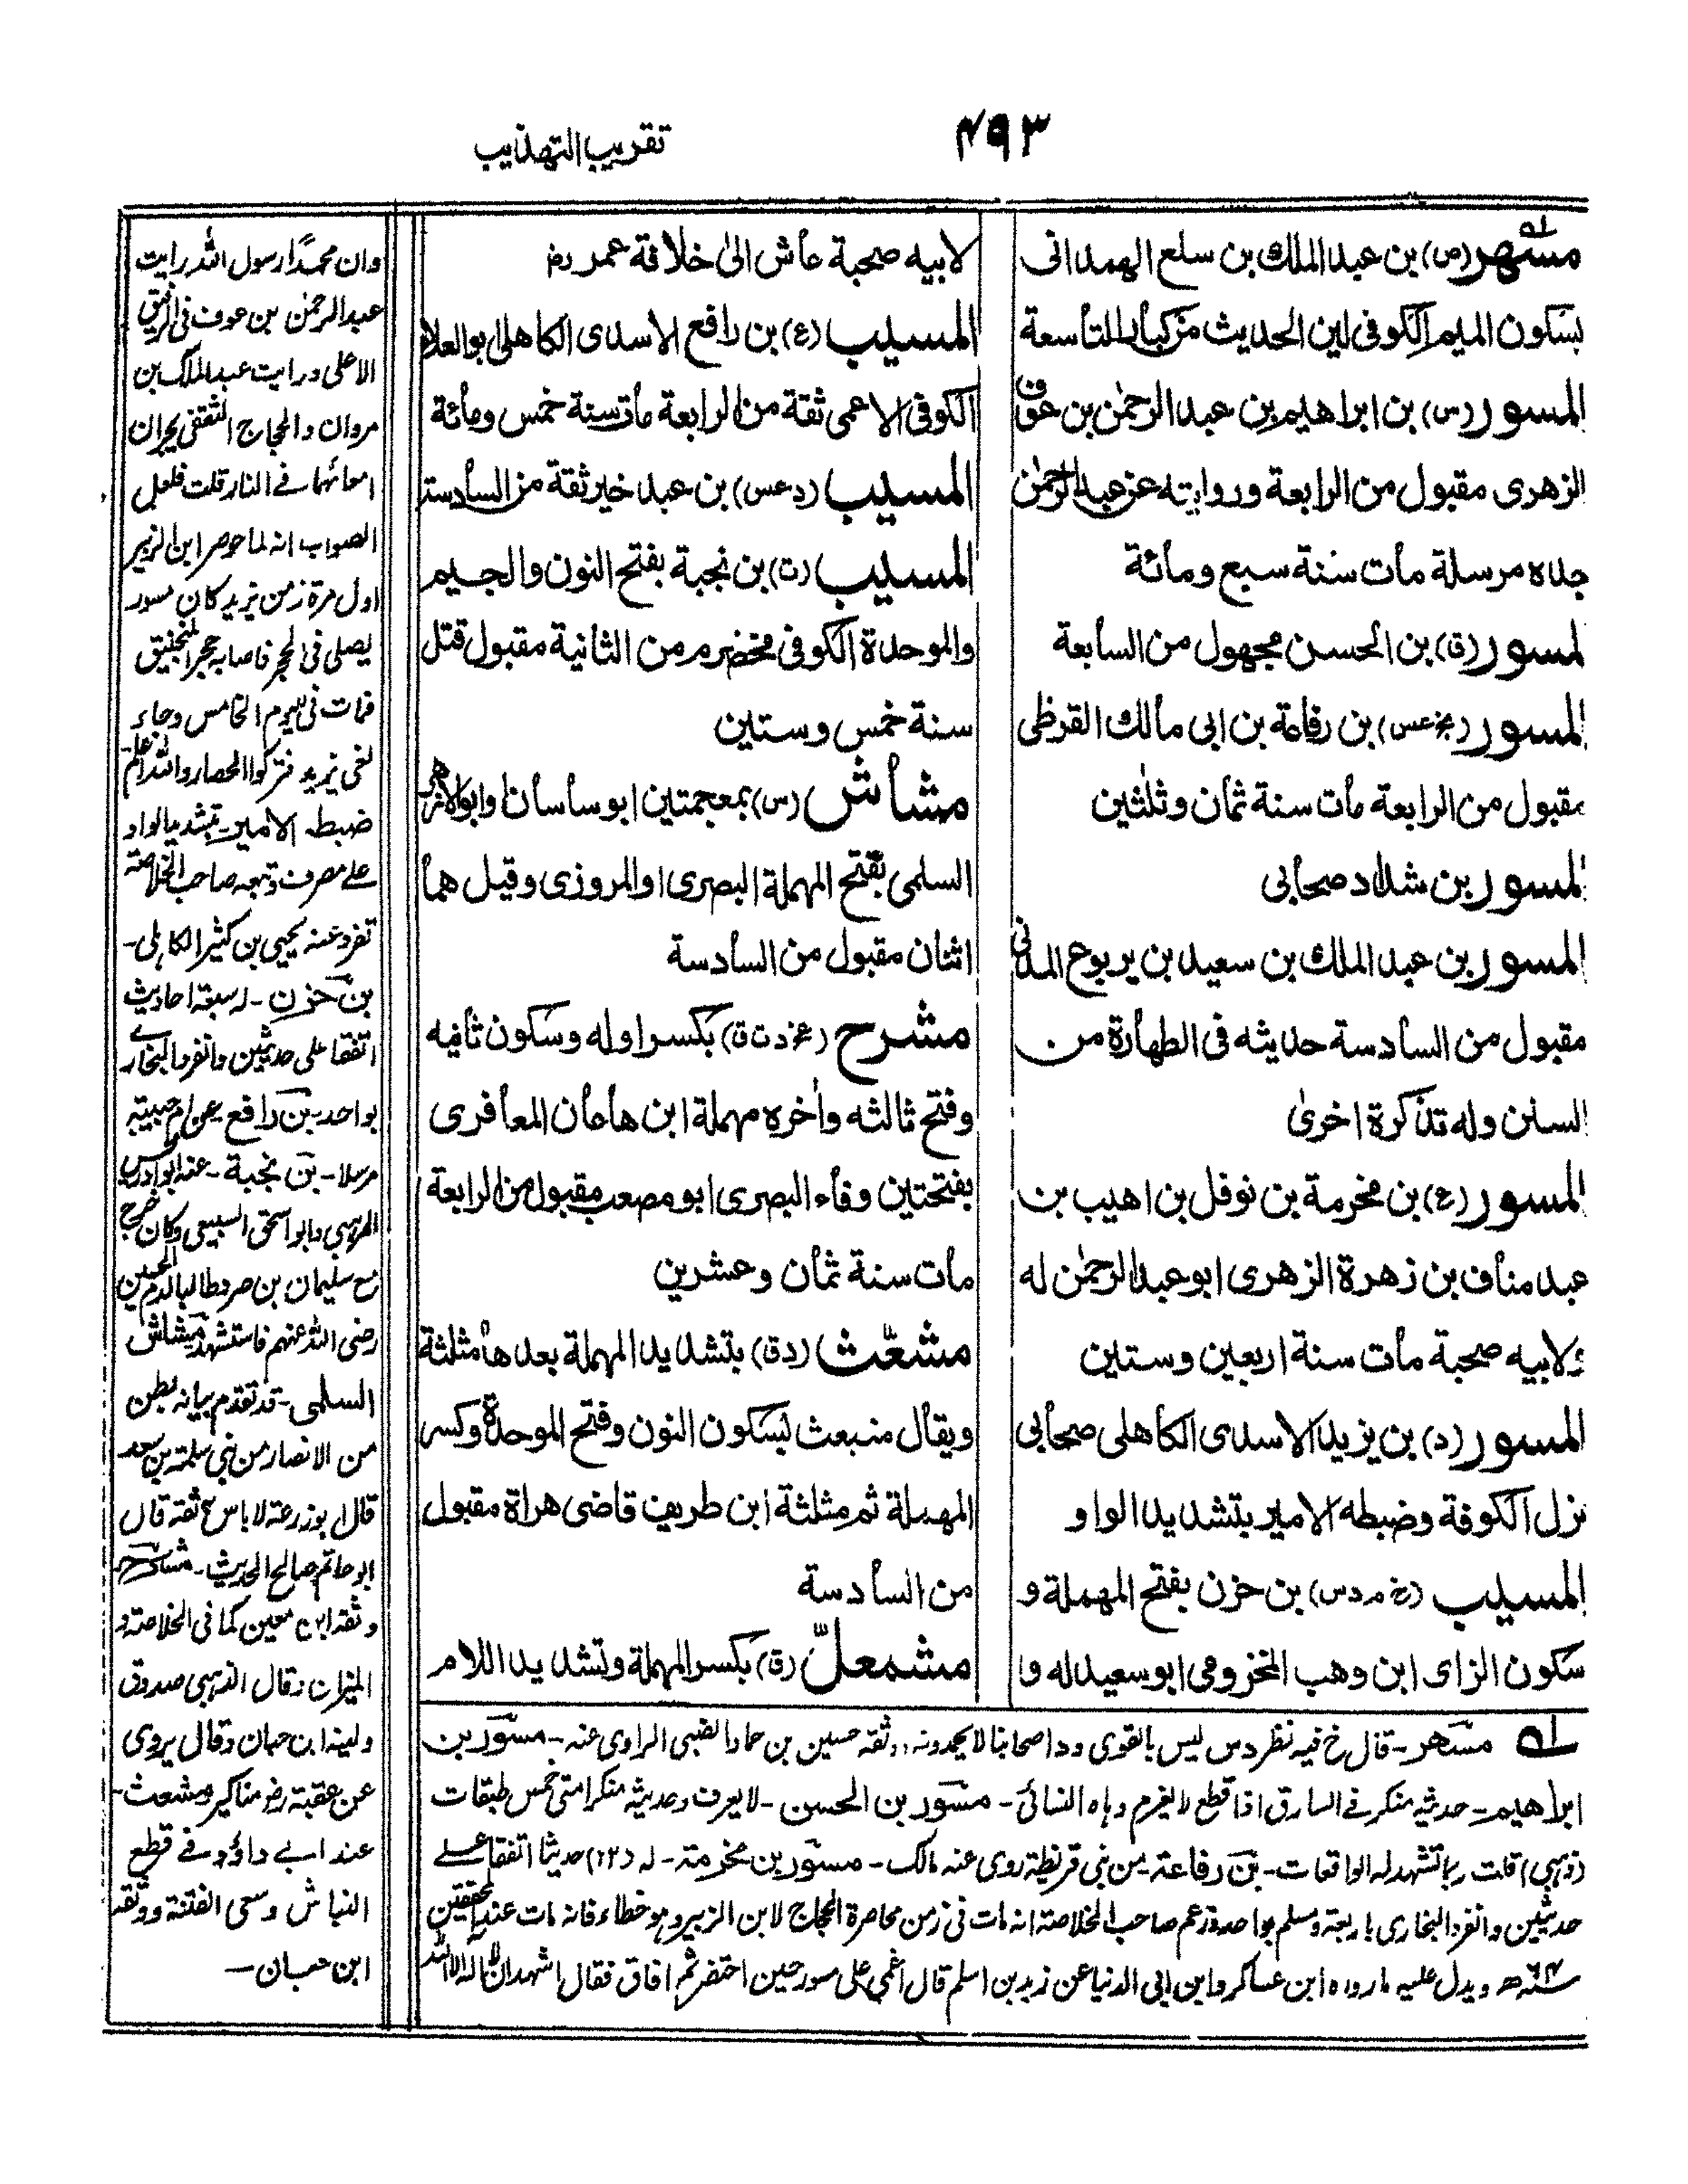 ۴۹۳
تقريب التهذيب
مسهر (ص) بن عبد الملك بن سلع الهمدانى
بسكون الميم الكوفى لين الحديث من كبار التاسعة
المسور (س) بن ابراهيم بن عبد الرحمٰن بن عوف
الزهرى مقبول من الرابعة وروايته عن عبد الرحمٰن
جده مرسلة مات سنة سبع ومائة
لمسور (ق) بن الحسن مجهول من السابعة
المسور (بخ عس) بن رفاعة بن ابى مالك القرظى
مقبول من الرابعة مات سنة ثمان وثلثين
المسور بن شداد صحابى
المسور بن عبد الملك بن سعيد بن يربوع المدنى
مقبول من السادسة حديثه فى الطهارة من
السنن وله تذكرة اخرىٰ
المسور (ع) بن مخرمة بن نوفل بن اهيب بن
عبد مناف بن زهرة الزهرى ابو عبد الرحمٰن له
ولابيه صحبة مات سنة اربعين وستين
المسور (د) بن يزيد الاسدى الكاهلى صحابى
نزل الكوفة وضبطه الامير بتشديد الواو
المسيب (خ م د س) بن حزن بفتح المهملة و
سكون الزاى ابن وهب المخزومى ابو سعيد له و
لابيه صحبة عاش الىٰ خلافة عمر رض
المسيب (ع) بن رافع الاسدى الكاهلى ابو العلاء
الكوفى الاعمى ثقة من الرابعة مات سنة خمس ومائة
المسيب (د عس) بن عبد خير ثقة من السادسة
المسيب (ت) بن نجبة بفتح النون والجيم
والموحدة الكوفى مخضرم من الثانية مقبول قتل
سنة خمس وستين
مشاش (س) بمعجمتين ابو ساسان وابو الازهر
السلمى بفتح المهملة البصرى او المروزى وقيل هما
اثنان مقبول من السادسة
مشرح (عخ د ت ق) بكسر اوله وسكون ثانيه
وفتح ثالثه واٰخره مهملة ابن هاعان المعافرى
بفتحتين وفاء البصرى ابو مصعب مقبول من الرابعة
مات سنة ثمان وعشرين
مشعّث (د ق) بتشديد المهملة بعدها مثلثة
ويقال منبعث بسكون النون وفتح الموحدة وكسر
المهملة ثم مثلثة ابن طريف قاضى هراة مقبول
من السادسة
مشمعلّ (ق) بكسر المهملة وتشديد اللام
له مسهر - قال خ فيه نظر دس ليس بالقوى ود اصحابنا لا يحمدونه ووثقه حسين بن حماد الضبى الراوى عنه - مسور بن
ابراهيم - حديثه منكر فى السارق اذا قطع لا يغرم وهاه النسائى - مسور بن الحسن - لا يعرف وحديثه منكر امتى خمس طبقات
(ذهبى) قلت ربما تشهد له الواقعات - بن رفاعة من بنى قريظة روى عنه مالك - مسور بن مخرمة - له (۲۲) حديثا اتفقا على
حديثين وانفرد البخارى باربعة ومسلم بواحد وزعم صاحب الخلاصة انه مات فى زمن محاصرة الحجاج لابن الزبير وهو خطاء فانه مات عند المحققين
سنة ۶۴ھ ويدل عليه ما رواه ابن عساكر وابن ابى الدنيا عن زيد بن اسلم قال اغمى على مسور حين احتضر ثم افاق فقال اشهد ان لا اله الا الله
وان محمدًا رسول الله رايت
عبد الرحمٰن بن عوف فى الرفيق
الاعلى ورايت عبد الملك بن
مروان والحجاج الثقفى يجران
امعائهما فى النار قلت فلعل
الصواب انه لما حوصر ابن الزبير
اول مرة زمن يزيد كان مسور
يصلى فى الحجر فاصابه حجر المنجنيق
فمات فى اليوم الخامس وجاء
نعى يزيد فتركوا الحصار والله اعلم
ضبطه الامير - بتشديد الواو
على مصرف وتبعه صاحب الخلاصة
تفرد عنه يحيى بن كثير الكاهلى -
بن حزن - له سبعة احاديث
اتفقا على حديثين وانفرد البخارى
بواحد - بن رافع عن ام حبيبة
مرسلا - بن نجبة - عنه ابو ادريس
المرهبى وابو اسحق السبيعى وكان خرج
مع سليمان بن صرد طالبا لدم الحسين
رضى الله عنهم فاستشهد مشاش
السلمى - قد تقدم بيانه بطن
من الانصار من بنى سلمة بن سعد
قال ابو زرعة لا باس ع ثقة قال
ابو حاتم صالح الحديث - مشرح
وثقه ابن معين كما فى الخلاصة و
الميزان وقال الذهبى صدوق
ولينه ابن حبان وقال يروى
عن عقبة رض مناكير ومشعث -
عند ابى داؤد فى قطع
النباش وسعى الفتنة ووثقه
ابن حبان -